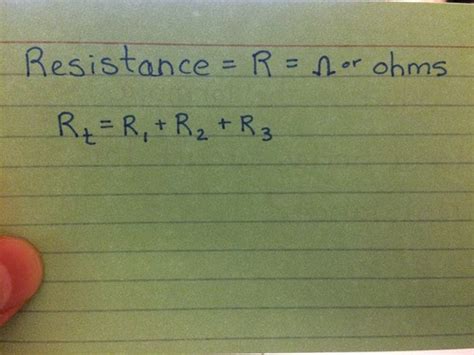 Resistance = R = Ω or ohms
Rt = R1 + R2 + R3